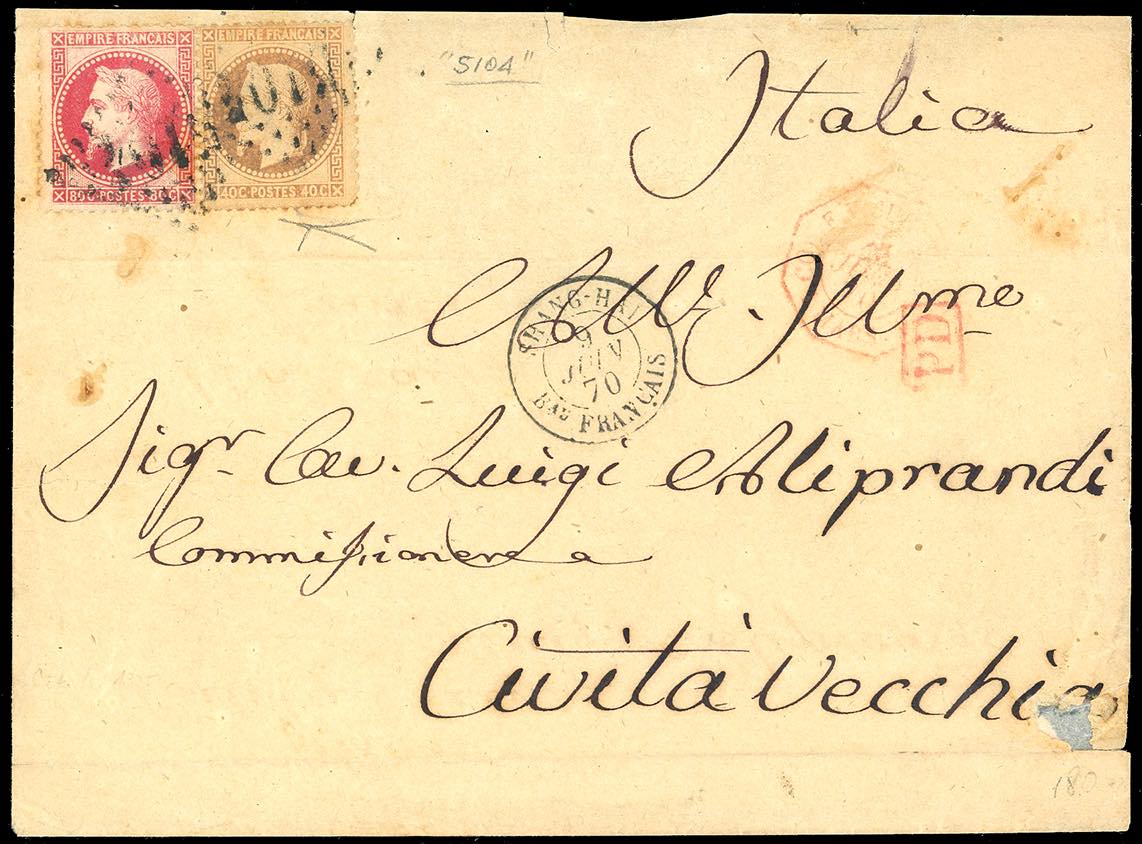 EMPIRE FRANÇAIS EMPIRE FRANÇAIS
80C·POSTES·80C 40C·POSTES·40C
"5104"
Italia
All' Illme
SHANG-HAI
9
JUIN
70
Bau FRANÇAIS
PD
Sigr. Cav. Luigi Aliprandi
Commissionere
Cività Vecchia
180